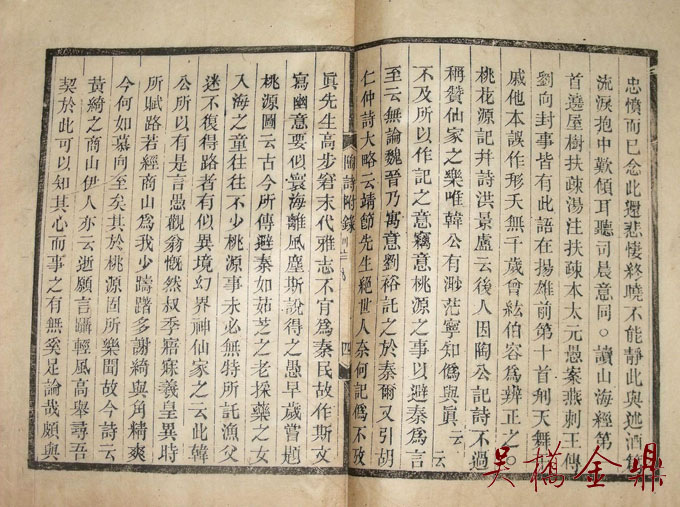 忠憤而已念此邅悲悽終曉不能靜此與述酒篇
流淚抱中歎傾耳聽司晨意同○讀山海經第一
首遶屋樹扶疎湯注扶疎本太元愚案燕刺王傳
劉向封事皆有此語在揚雄前第十首刑天舞干
戚他本誤作形夭無千歲曾紘伯容爲辨正之○
桃花源記幷詩洪景盧云後人因陶公記詩不過
稱贊仙家之樂唯韓公有渺茫寧知僞與眞云云
不及所以作記之意竊意桃源之事以避秦爲言
至云無論魏晉乃寓意劉裕託之於秦爾又引胡
仁仲詩大略云靖節先生絕世人奈何記僞不攷
陶詩附錄
四
眞先生高步窘末代雅志不肯爲秦民故作斯文
寫幽意要似寰海離風塵斯說得之愚早歲嘗題
桃源圖云古今所傳避秦如茹芝之老採藥之女
入海之童往往不少桃源事未必無特所託漁父
迷不復得路者有似異境幻界神仙家之云此韓
公所以有是言愚觀翁慨然叔季寤寐羲皇異時
所賦路若經商山爲我少躊躇多謝綺與角精爽
今何如慕向至矣其於桃源固所樂聞故今詩云
黃綺之商山伊人亦云逝願言躡輕風高舉尋吾
契於此可以知其心而事之有無奚足論哉頗與
吳橋金鼎